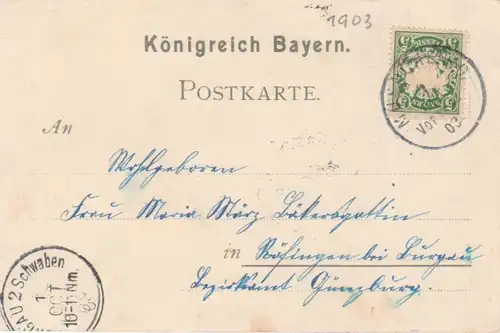 1903
Königreich Bayern.
POSTKARTE.
An
Wohlgeboren
Frau Maria März Bäkersgattin
in Röfingen bei Burgau
Bezirksamt Günzburg.
Vor
03
2 Schwaben
1
OCT
10-11 Nm.